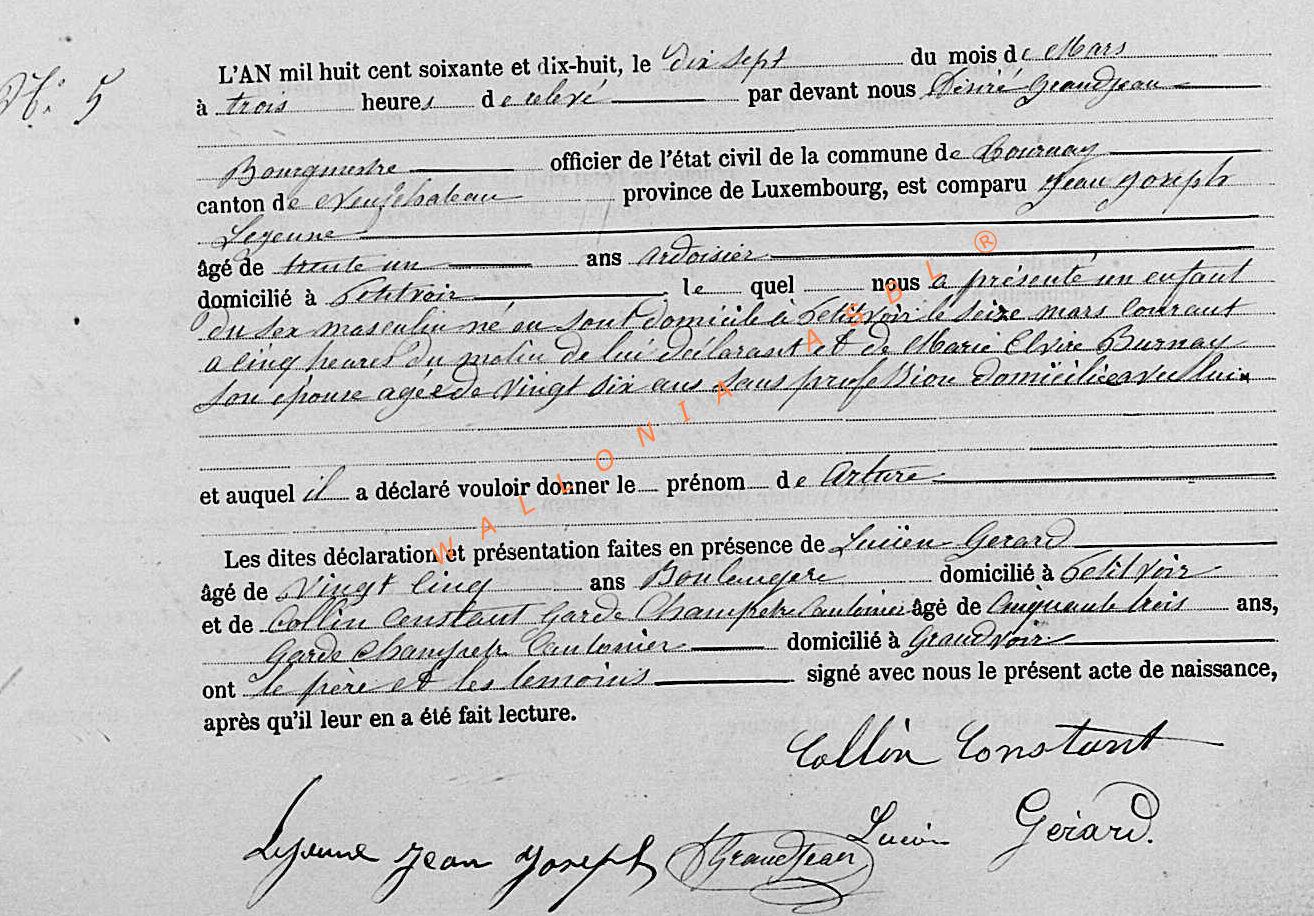 N: 5
L'AN mil huit cent soixante et dix-huit, le dix sept du mois de Mars
à trois heures de relevé par devant nous Désiré Grandjean
Bourgmestre officier de l'état civil de la commune de Tournay
canton de Neufchateau province de Luxembourg, est comparu Jean Joseph
Lejeune
âgé de trente un ans ardoisier
domicilié à Petitvoir le quel nous a présenté un enfant
du sex masculin né en sont domicile à Petitvoir le seize mars courant
a cinq heures du matin de lui déclarant et de Marie Elvire Burnay
son épouse agée de vingt six ans sans profession domiciliée avec lui
et auquel il a déclaré vouloir donner le prénom de Arture
Les dites déclaration et présentation faites en présence de Lucien Gerard
âgé de Vingt Cinq ans Boulangere domicilié à Petitvoir
et de Collin Constant Garde Champetre Cantonier âgé de Cinquante trois ans,
Garde Champetr Cantonier domicilié à Grandvoir
ont le père et les témoins signé avec nous le présent acte de naissance,
après qu'il leur en a été fait lecture.
Collin Constant
Lucien Gérard.
Lejeune Jean Joseph DGrandJean
WALLONIA ASBL ®